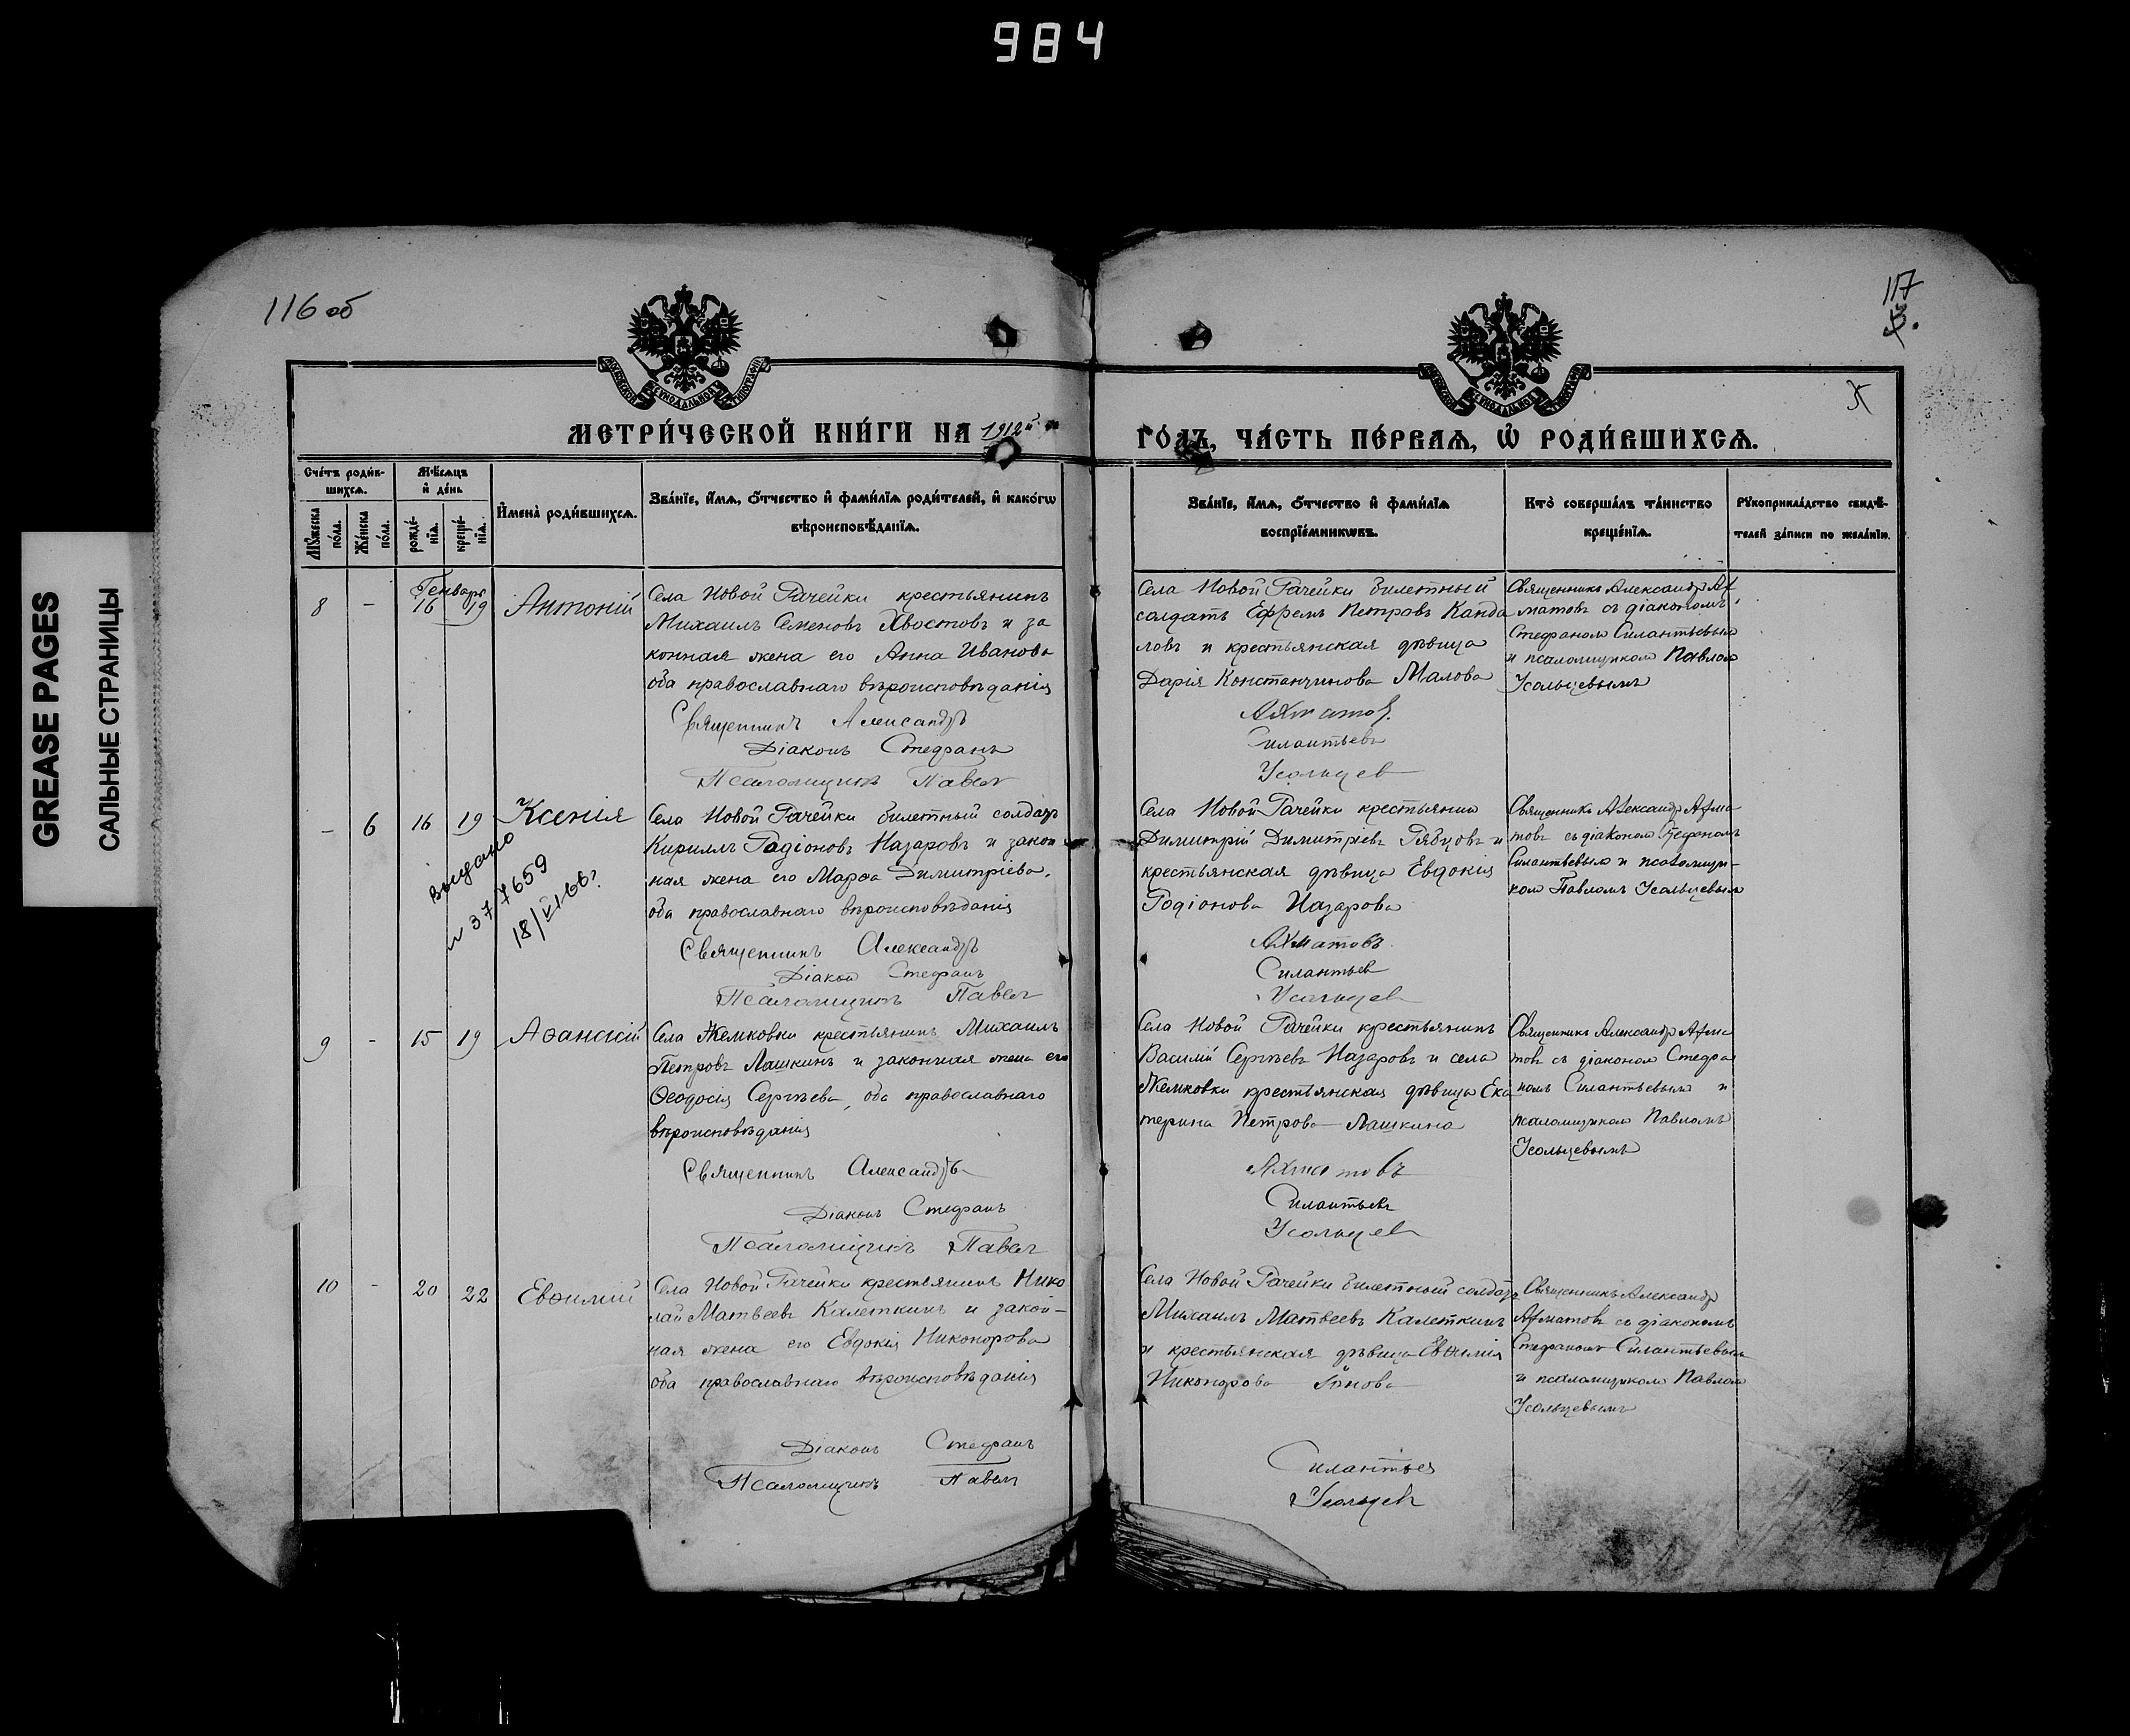 984
GREASE PAGES
САЛЬНЫЕ СТРАНИЦЫ
116 об
117
МОСКОВСКОЙ СИНОДАЛЬНОЙ ТИПОГРАФІИ
МОСКОВСКОЙ СИНОДАЛЬНОЙ ТИПОГРАФІИ
МЕТРИ́ЧЕСКОЙ КНИ́ГИ НА 1912й
ГО́ДЪ, ЧА́СТЬ ПЕ́РВАѦ, Ѡ҆ РОДИ́ВШИХСѦ.
Сче́тъ роди́в-
шихсѧ.
Мꙋ́жеска
по́ла.
Же́нска
по́ла.
Мѣ́сѧцъ
и҆ де́нь
рожде́-
нїѧ.
креще́-
нїѧ.
И҆мена̀ роди́вшихсѧ.
Зва́нїе, и҆́мѧ, ѻ҆́тчество и҆ фами́лїѧ роди́телей, и҆ како́гѡ
вѣроисповѣ́данїѧ.
Зва́нїе, и҆́мѧ, ѻ҆́тчество и҆ фами́лїѧ
воспрїе́мникѡвъ.
Кто̀ соверша́лъ та́инство
креще́нїѧ.
Рꙋкоприкла́дство свидѣ́-
телей за́писи по жела́нїю.
Генварь
8 - 16 19 Антоній
Села Новой Рачейки крестьянинъ
Михаилъ Семеновъ Хвостовъ и за
конная жена его Анна Иванова
оба православнаго вѣроисповѣданія
Священникъ Александръ
Діаконъ Стефанъ
Псаломщикъ Павел
Села Новой Рачейки билетный
солдатъ Ефремъ Петровъ Канда
ловъ и крестьянская дѣвица
Дарія Константинова Малова
Ахматов
Силантьевъ
Усольцев
Священникъ Александр Ах
матовъ съ діакономъ
Стефаномъ Силантьевым
и псаломщиком Павлом
Усольцевымъ
- 6 16 19 Ксенія
выдано
н 377659
18/VI 66 г.
Села Новой Рачейки билетный солдатъ
Кириллъ Радіоновъ Назаровъ и закон
ная жена его Марѳа Димитріева,
оба православнаго вѣроисповѣданія
Священникъ Александръ
Діакон Стефанъ
Псаломщикъ Павел
Села Новой Рачейки крестьянин
Димитрій Димитріевъ Рябцовъ и
крестьянская дѣвица Евдокія
Родіонова Назарова
Ахматовъ
Силантьев
Усольцев
Священникъ Александр Ахма
товъ съ діаконом Стефаномъ
Силантьевым и псаломщи-
ком Павломъ Усольцевым
9 - 15 19 Аѳанасій
Села Жемковки крестьянинъ Михаилъ
Петровъ Лашкинъ и законная жена его
Ѳеодосія Сергѣева, оба православнаго
вѣроисповѣданія
Священникъ Александръ
Діаконъ Стефанъ
Псаломщикъ Павел
Села Новой Рачейки крестьянинъ
Василій Сергѣевъ Назаровъ и села
Жемковки крестьянская дѣвица Ека
терина Петрова Лашкина
Ахматовъ
Силантьевъ
Усольцев
Священникъ Александр Ахма
товъ съ діаконом Стефа
номъ Силантьевым и
псаломщиком Павломъ
Усольцевымъ
10 - 20 22 Евѳимій
Села Новой Рачейки крестьянинъ Нико
лай Матвеевъ Калеткинъ и закон-
ная жена его Евдокія Никонорова
оба православнаго вѣроисповѣданія
Діаконъ Стефанъ
Псаломщикъ Павел
Села Новой Рачейки билетный солдатъ
Михаилъ Матвеевъ Калеткинъ
и крестьянская дѣвица Евѳимія
Никонорова Іонова
Силантьев
Усольцевъ
Священникъ Александр
Ахматовъ съ діакономъ
Стефаномъ Силантьевым
и псаломщиком Павлом
Усольцевымъ